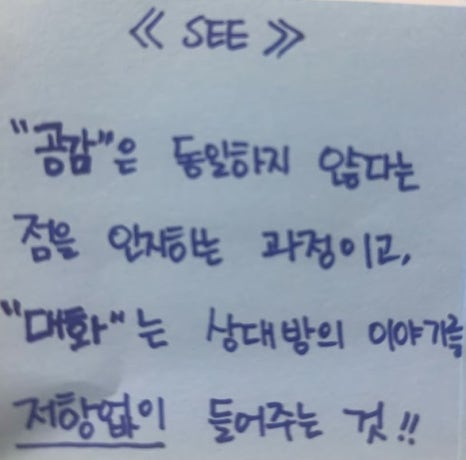 ≪ SEE ≫
"공감"은 동일하지 않다는
점을 인지하는 과정이고,
"대화"는 상대방의 이야기를
저항없이 들어주는 것!!